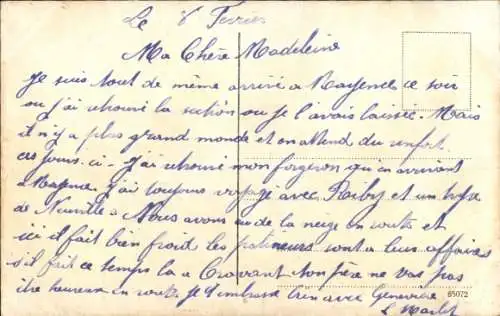 Le 8 Février
Ma Chère Madeleine
Je suis tout de même arrivé a Mayence ce soir
ou j'ai retrouvé la section ou je l'avais laissée. Mais
il n'y a plus grand monde et on attend du renfort
ces jours. ci. J'ai retrouvé mon forgeron qu'en arrivant
a Mayence. J'ai toujours voyagé avec et un type
de Neuville. Nous avons eu de la neige en route et
ici il fait bien froid les patineurs sont a leur affaires
s'il fait ce temps la a Cravant ton père ne vas pas
être heureux en route. Je t'embrasse bien avec Geneviève
65072